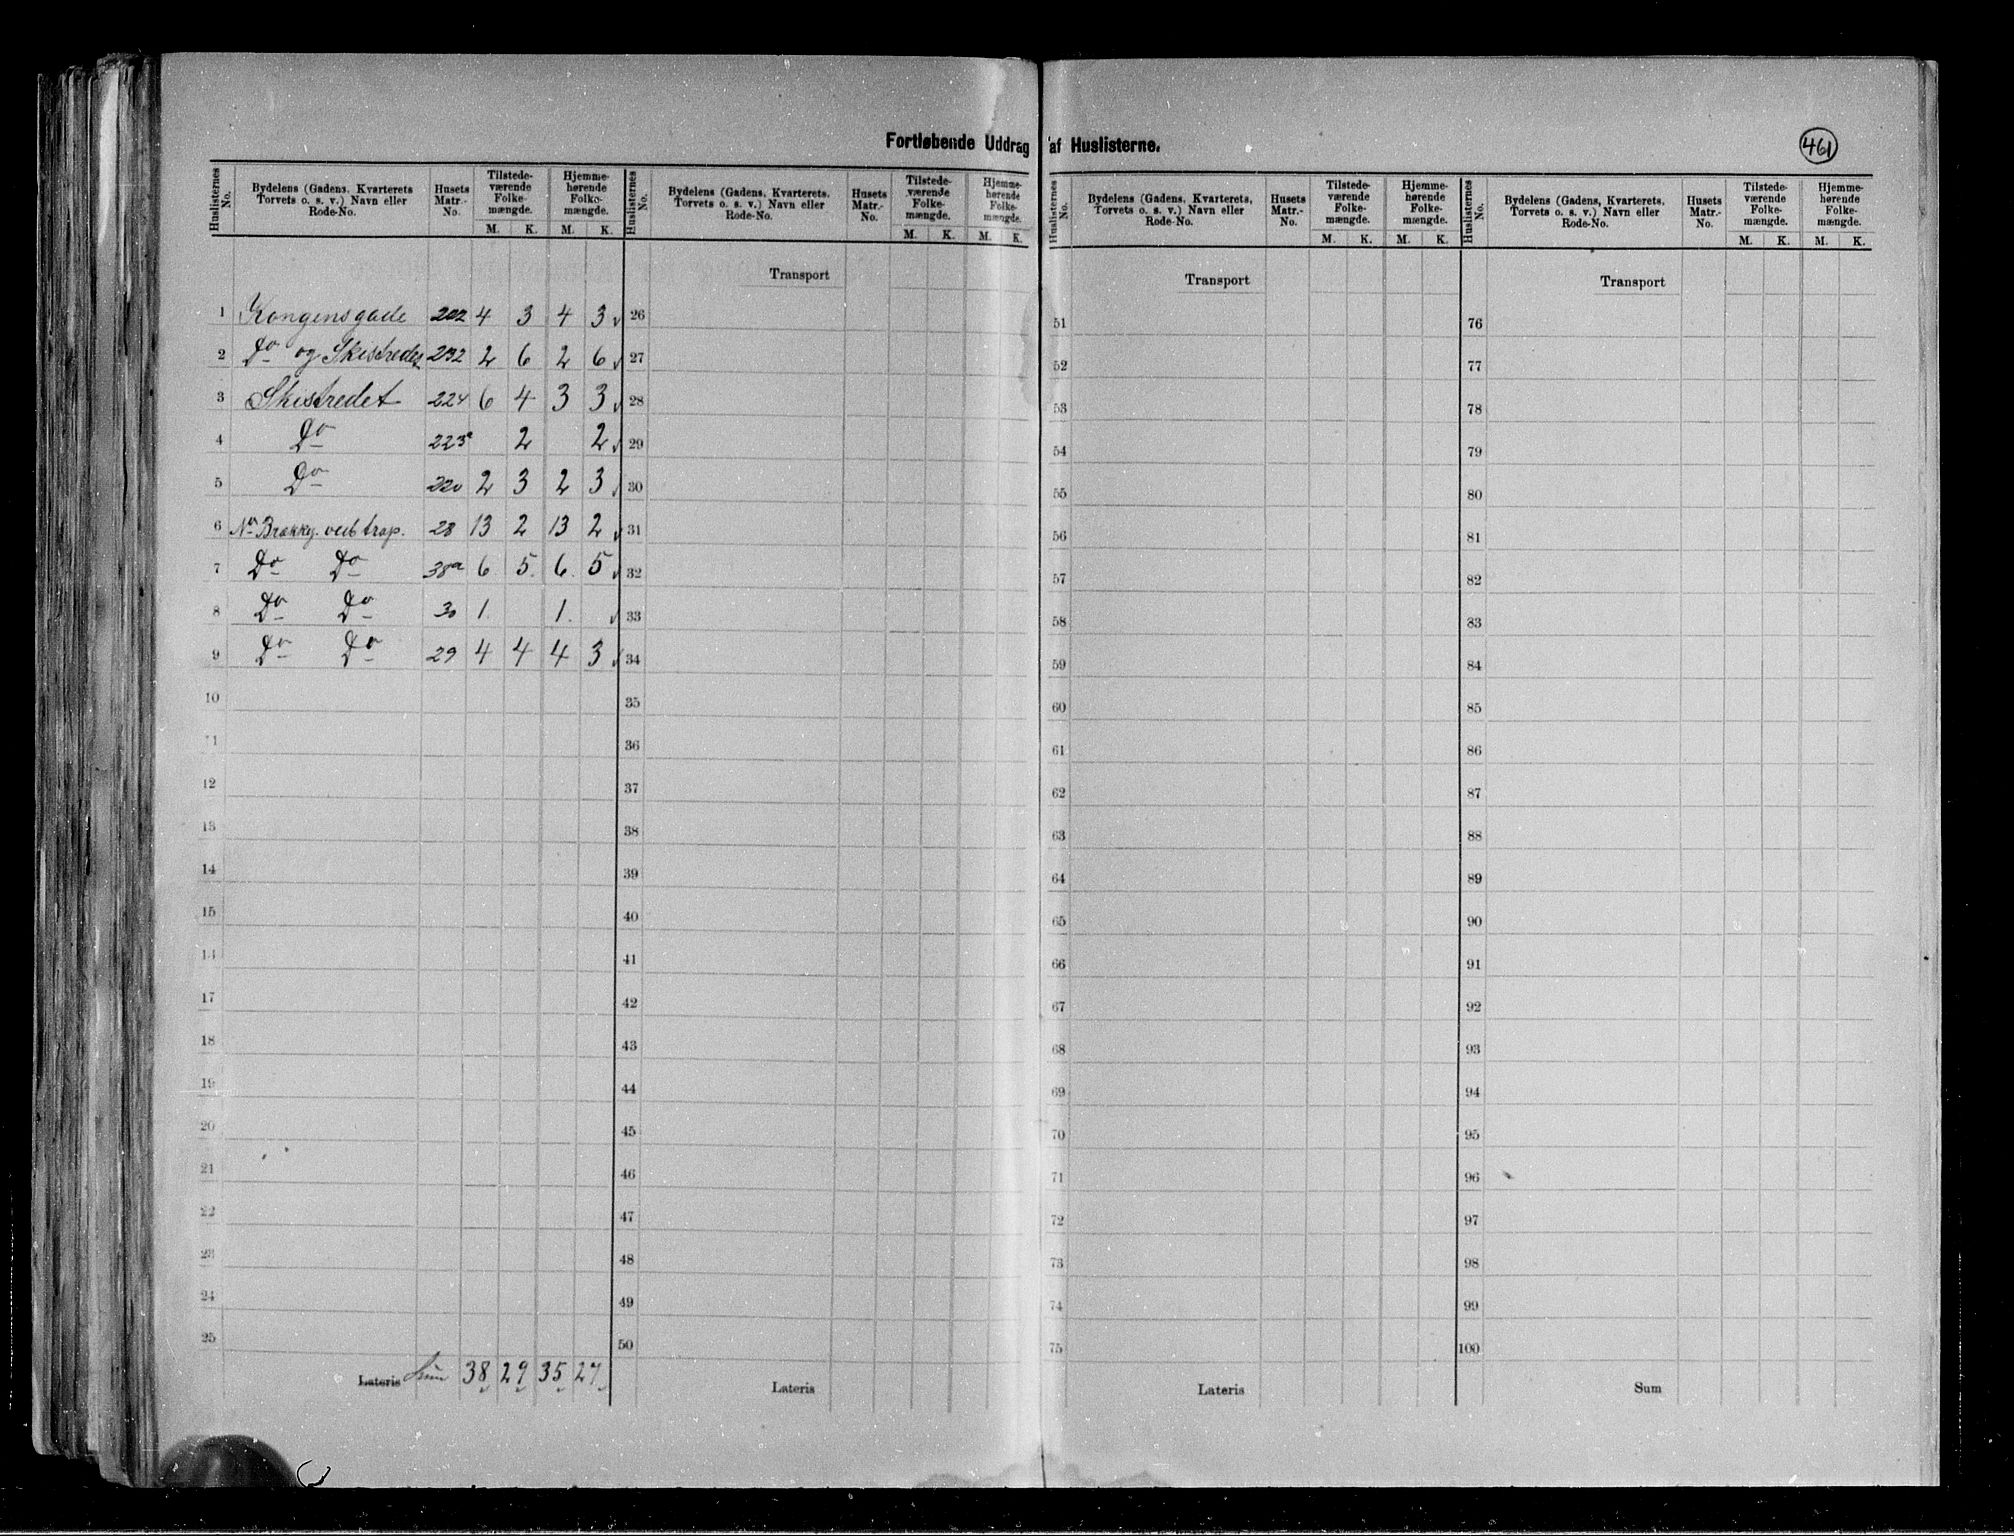 Fortløbende Uddrag af Huslisterne.
461
Huslisternes No. | Bydelens (Gadens, Kvarterets Torvets o. s. v.) Navn eller Rode-No. | Husets Matr.-No. | Tilstede-værende Folke-mængde. M. K. | Hjemme-hørende Folke-mængde. M. K.
Huslisternes No. | Bydelens (Gadens, Kvarterets, Torvets o. s. v.) Navn eller Rode-No. | Husets Matr.-No. | Tilstede-værende Folke-mængde. M. K. | Hjemme-hørende Folke-mængde. M. K.
Huslisternes No. | Bydelens (Gadens, Kvarterets, Torvets o. s. v.) Navn eller Rode-No. | Husets Matr.-No. | Tilstede-værende Folke-mængde. M. K. | Hjemme-hørende Folke-mængde. M. K.
Huslisternes No. | Bydelens (Gadens, Kvarterets, Torvets o. s. v.) Navn eller Rode-No. | Husets Matr.-No. | Tilstede-værende Folke-mængde. M. K. | Hjemme-hørende Folke-mængde. M. K.
Transport Transport Transport
1 Kongensgade 202 4 3 4 3 26 51 76
2 Do og Skistredet 232 2 6 2 6 27 52 77
3 Skistredet 224 6 4 3 3 28 53 78
4 Do 223a 2 2 29 54 79
5 Do 220 2 3 2 3 30 55 80
6 28 13 2 13 2 31 56 81
7 Do Do 38a 6 5 6 5 32 57 82
8 Do Do 30 1 1 33 58 83
9 Do Do 29 4 4 4 3 34 59 84
10 35 60 85
11 36 61 86
12 37 62 87
13 38 63 88
14 39 64 89
15 40 65 90
41 66 91
17 42 67 92
18 43 68 93
19 44 69 94
20 45 70 95
21 46 71 96
22 47 72 97
23 48 73 98
24 49 74 99
25 50 75 100
Lateris Sum 38 29 35 27 Lateris Lateris Sum